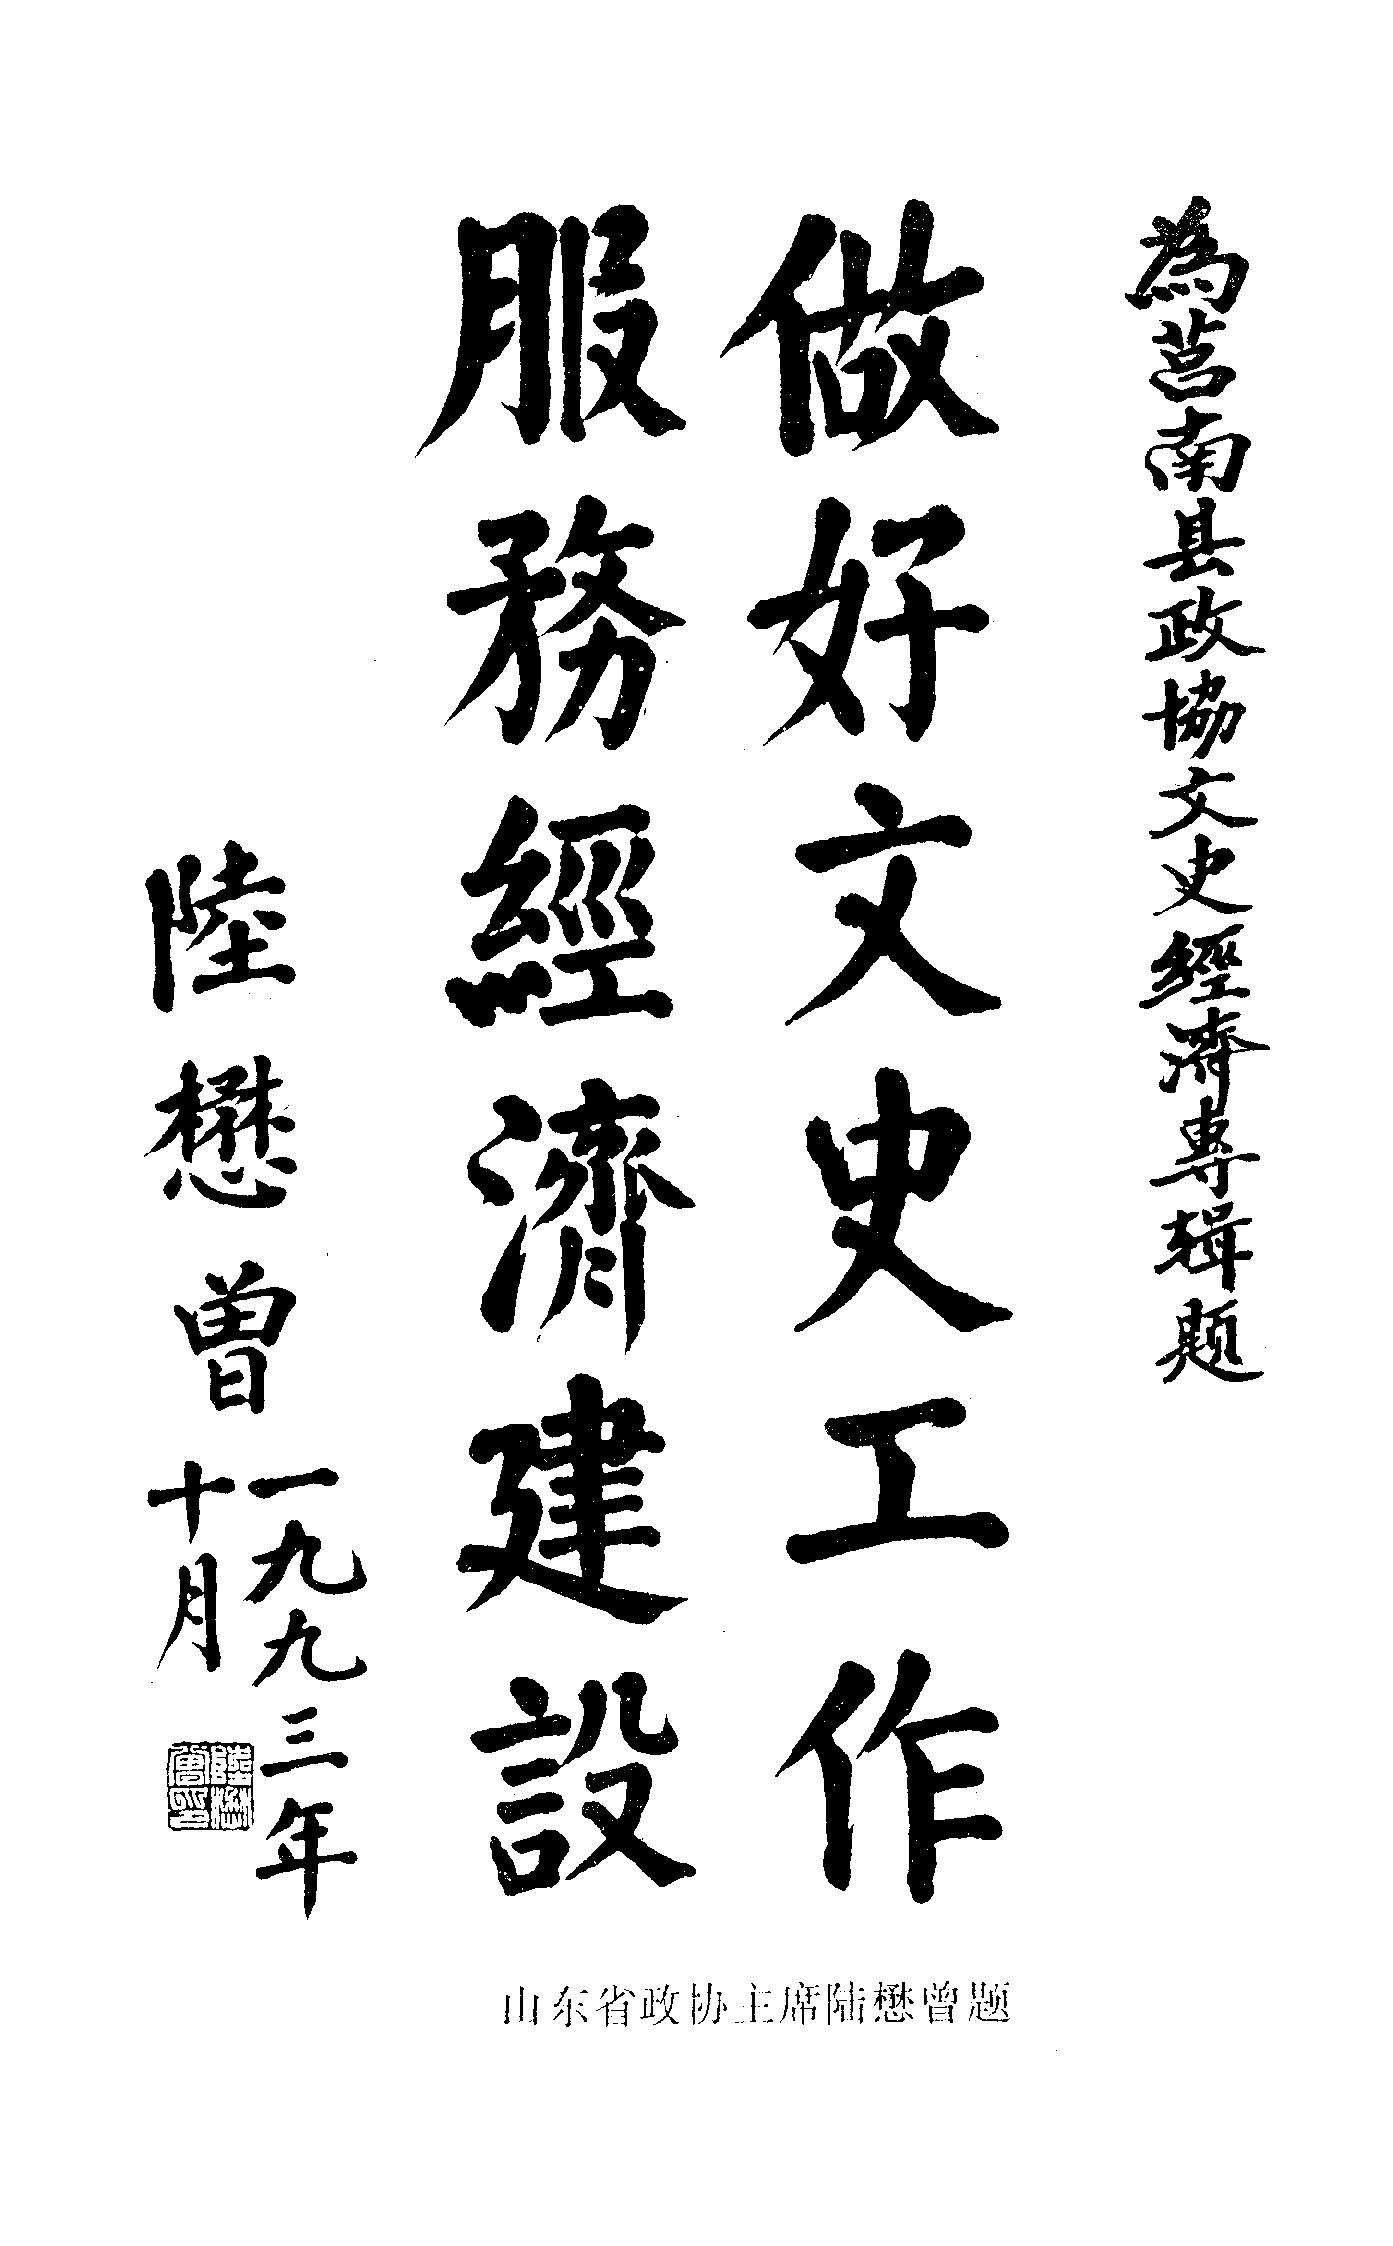 為莒南县政協文史經濟專辑题
做好文史工作
服務經濟建設
陸懋曾
一九九三年
十月
陸懋曾印
山东省政协主席陆懋曾题